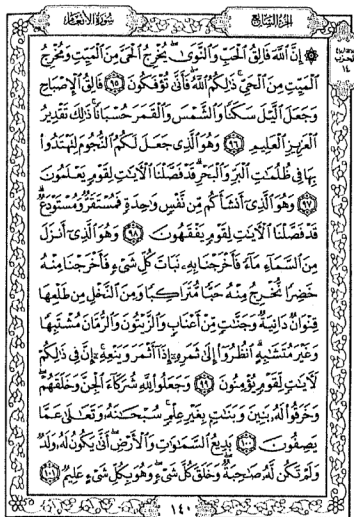 سورة الأنعام
الجزء السابع
۞ إِنَّ ٱللَّهَ فَالِقُ ٱلْحَبِّ وَٱلنَّوَىٰ ۖ يُخْرِجُ ٱلْحَىَّ مِنَ ٱلْمَيِّتِ وَمُخْرِجُ
ٱلْمَيِّتِ مِنَ ٱلْحَىِّ ۚ ذَٰلِكُمُ ٱللَّهُ ۖ فَأَنَّىٰ تُؤْفَكُونَ ٩٥ فَالِقُ ٱلْإِصْبَاحِ
وَجَعَلَ ٱلَّيْلَ سَكَنًا وَٱلشَّمْسَ وَٱلْقَمَرَ حُسْبَانًا ۚ ذَٰلِكَ تَقْدِيرُ
ٱلْعَزِيزِ ٱلْعَلِيمِ ٩٦ وَهُوَ ٱلَّذِى جَعَلَ لَكُمُ ٱلنُّجُومَ لِتَهْتَدُوا۟
بِهَا فِى ظُلُمَٰتِ ٱلْبَرِّ وَٱلْبَحْرِ ۗ قَدْ فَصَّلْنَا ٱلْءَايَٰتِ لِقَوْمٍ يَعْلَمُونَ
٩٧ وَهُوَ ٱلَّذِىٓ أَنشَأَكُم مِّن نَّفْسٍ وَٰحِدَةٍ فَمُسْتَقَرٌّ وَمُسْتَوْدَعٌ ۗ
قَدْ فَصَّلْنَا ٱلْءَايَٰتِ لِقَوْمٍ يَفْقَهُونَ ٩٨ وَهُوَ ٱلَّذِىٓ أَنزَلَ
مِنَ ٱلسَّمَآءِ مَآءً فَأَخْرَجْنَا بِهِۦ نَبَاتَ كُلِّ شَىْءٍ فَأَخْرَجْنَا مِنْهُ
خَضِرًا نُّخْرِجُ مِنْهُ حَبًّا مُّتَرَاكِبًا وَمِنَ ٱلنَّخْلِ مِن طَلْعِهَا
قِنْوَانٌ دَانِيَةٌ وَجَنَّٰتٍ مِّنْ أَعْنَابٍ وَٱلزَّيْتُونَ وَٱلرُّمَّانَ مُشْتَبِهًا
وَغَيْرَ مُتَشَٰبِهٍ ۗ ٱنظُرُوٓا۟ إِلَىٰ ثَمَرِهِۦٓ إِذَآ أَثْمَرَ وَيَنْعِهِۦٓ ۚ إِنَّ فِى ذَٰلِكُمْ
لَءَايَٰتٍ لِّقَوْمٍ يُؤْمِنُونَ ٩٩ وَجَعَلُوا۟ لِلَّهِ شُرَكَآءَ ٱلْجِنَّ وَخَلَقَهُمْ ۖ
وَخَرَقُوا۟ لَهُۥ بَنِينَ وَبَنَٰتٍۭ بِغَيْرِ عِلْمٍ ۚ سُبْحَٰنَهُۥ وَتَعَٰلَىٰ عَمَّا
يَصِفُونَ ١٠٠ بَدِيعُ ٱلسَّمَٰوَٰتِ وَٱلْأَرْضِ ۖ أَنَّىٰ يَكُونُ لَهُۥ وَلَدٌ
وَلَمْ تَكُن لَّهُۥ صَٰحِبَةٌ ۖ وَخَلَقَ كُلَّ شَىْءٍ ۖ وَهُوَ بِكُلِّ شَىْءٍ عَلِيمٌ ١٠١
الحزب
١٤
١٤٠